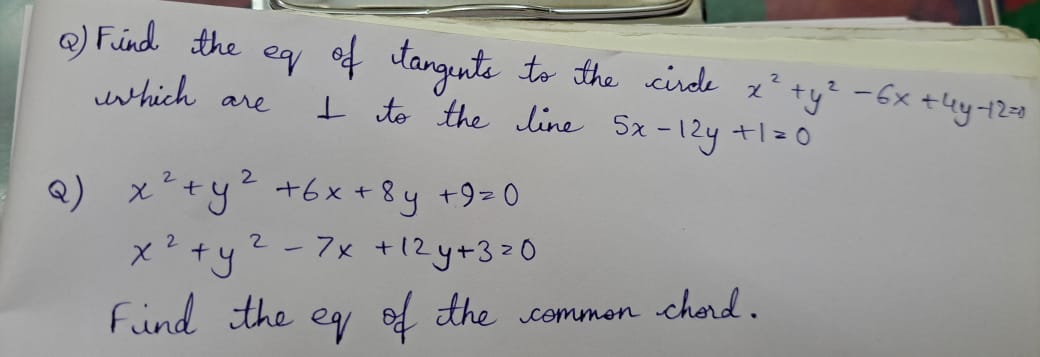 Q) Find the eq of tangents to the circle x² + y² - 6x + 4y - 12 = 0
which are ⊥ to the line 5x - 12y + 1 = 0
Q) x² + y² + 6x + 8y + 9 = 0
x² + y² - 7x + 12y + 3 = 0
Find the eq of the common chord.